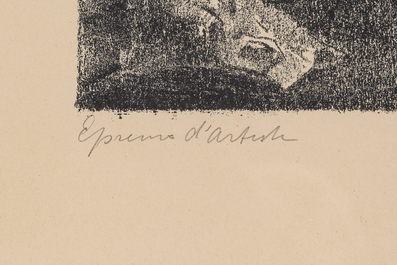 Épreuve d'Artiste